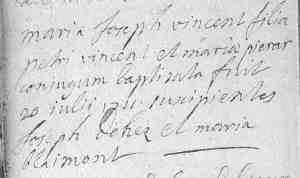 maria Joseph vincent filia
petri vincent et maria pierar
coniugum baptizata fuit
20 iulii suscipientes
Joseph dehez et maria
blaimont